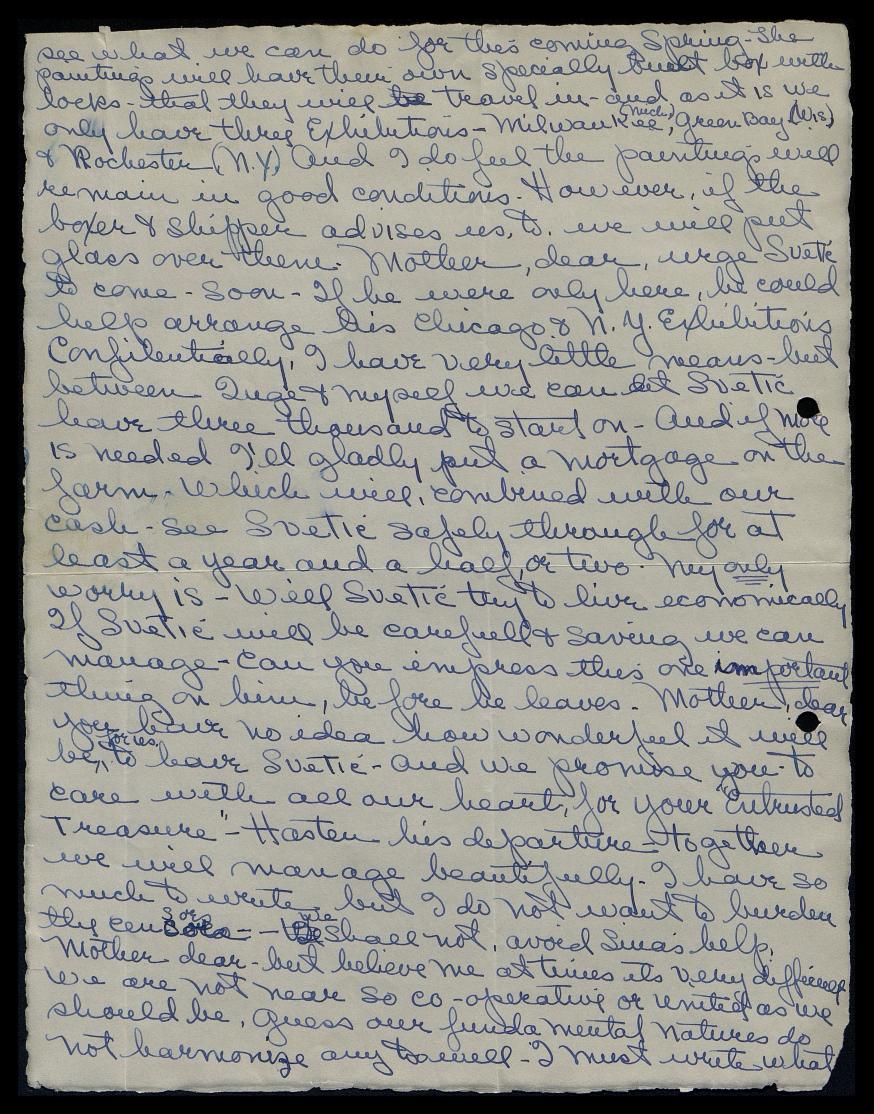 see what we can do for this coming Spring. The
paintings will have their own specially built box with
locks - that they will be travel in - and as it is we
only have three Exhibitions - Milwaukee, (Mich.) Green Bay (Wis)
& Rochester (N.Y.) And I do feel the paintings will
remain in good condition. However, if the
boxer & shipper advises us, to. we will put
glass over them. Mother, dear, urge Svetic
to come - soon - If he were only here, he could
help arrange his Chicago & N.Y. Exhibitions
Confidentially, I have very little means - but
between Inge & myself we can let Svetic
have three thousand to start on - And if more
is needed I'll gladly put a mortgage on the
farm. Which will, combined with our
cash - see Svetic safely through for at
least a year and a half, or two. My only
worry is - Will Svetic try to live economically
If Svetic will be carefull & saving we can
manage - Can you impress this one important
thing on him, before he leaves. Mother, dear
you have no idea how wonderful it will
be, for us, to have Svetic - And we promise you - to
care with all our heart, for your "Entrusted
Treasure" - Hasten his departure - together
we will manage beautifully - I have so
much to write, but I do not want to burden
the censors - We shall not, avoid Sina's help,
Mother dear - but believe me at times its very difficult
We are not near so co-operative or united as we
should be, guess our fundamental natures do
not harmonize any to well - I must write what